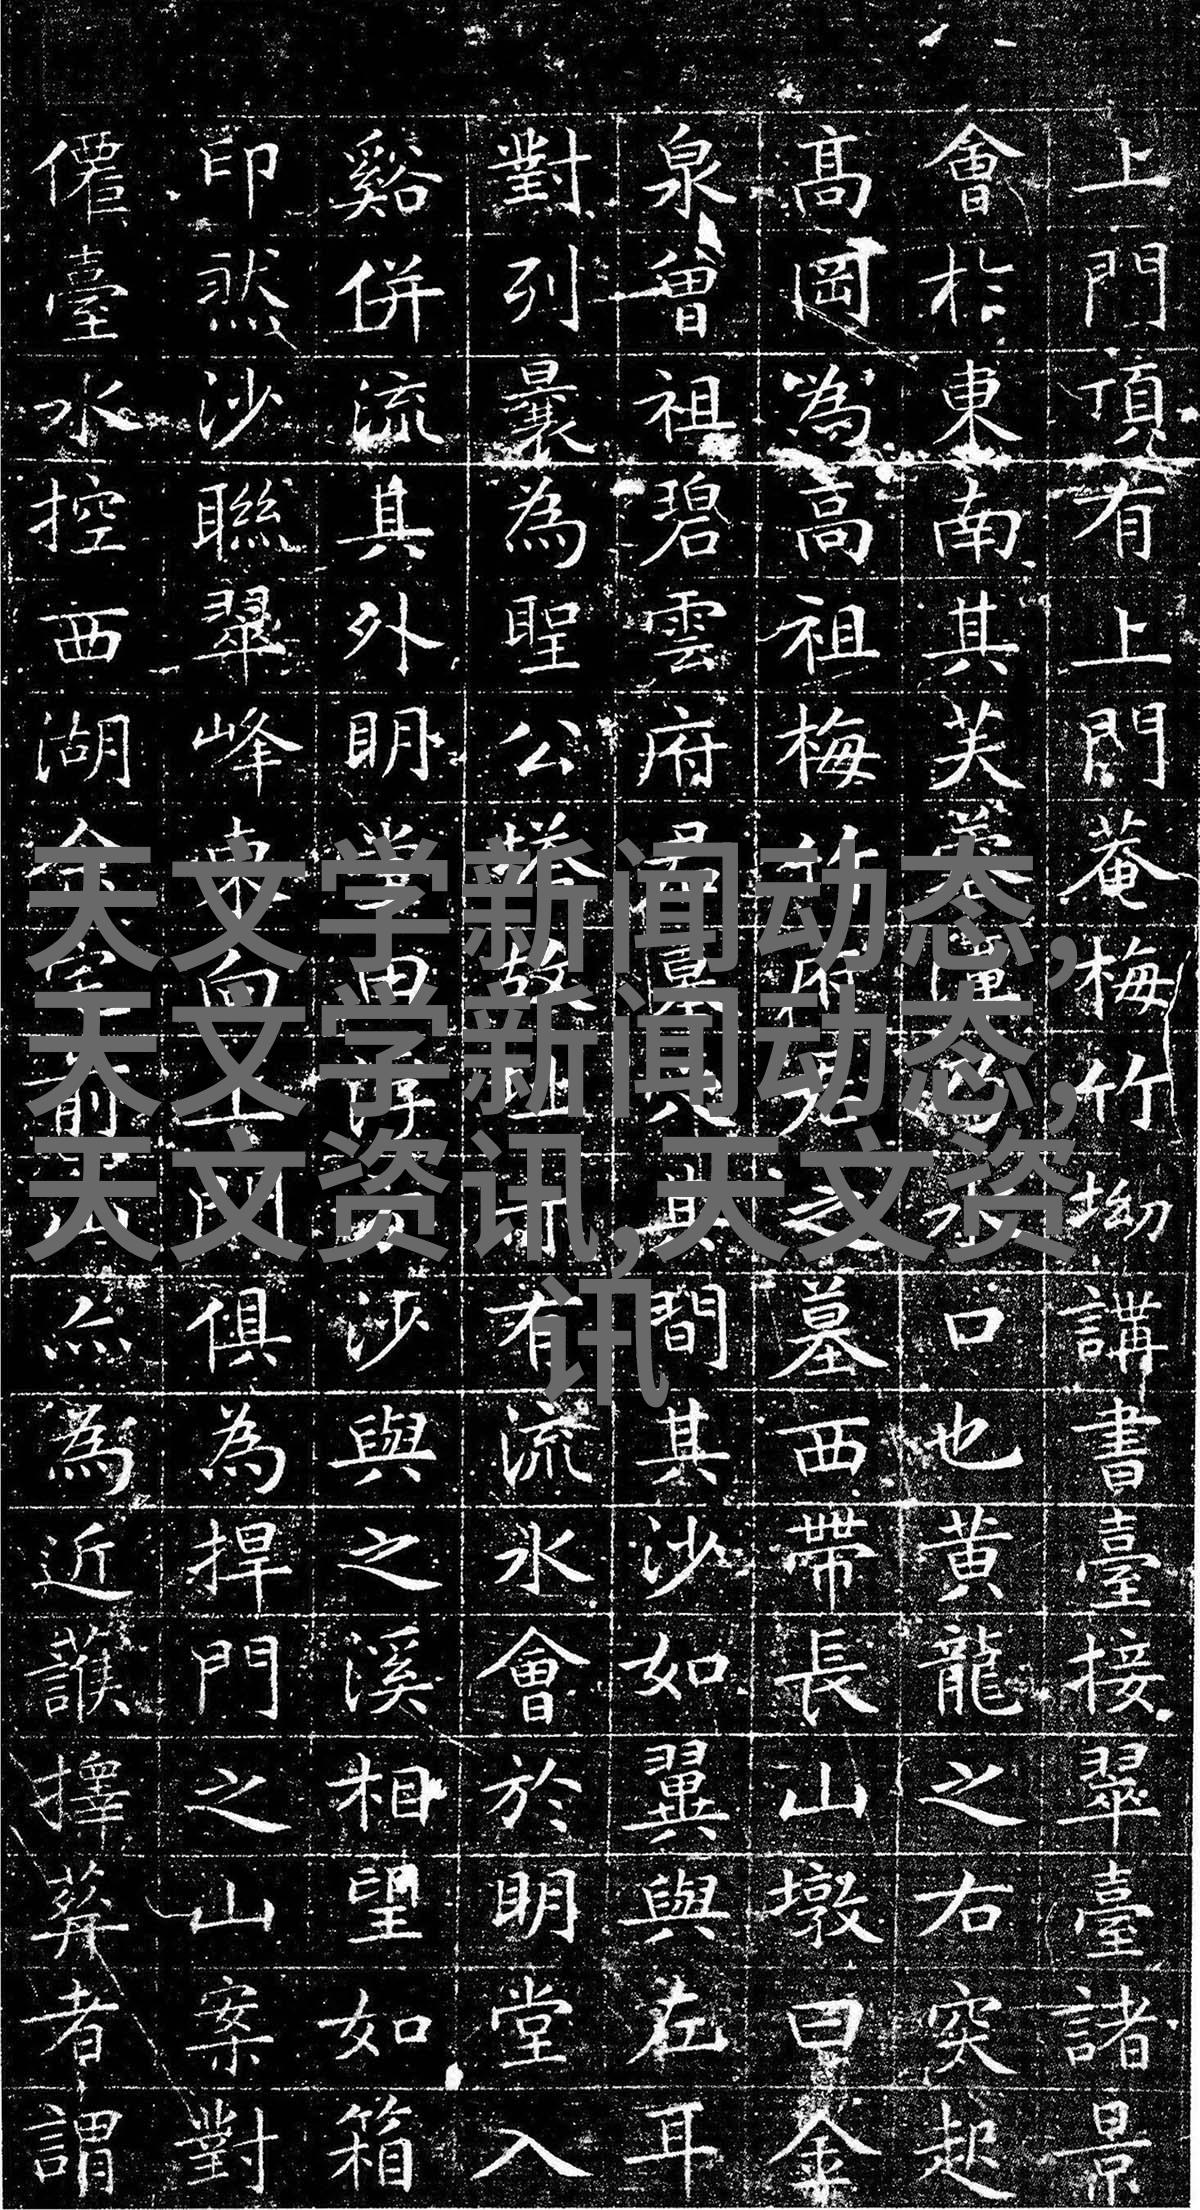 上門頂有上門菴梅竹坳講書臺接翠臺諸景
會於東南其芙蓉水口也黃龍之右突起
高岡為高祖梅竹府君之墓西帶長山墩曰金
泉曾祖碧雲府君墓其間其沙如翼與左耳
對列曩為聖公塔故址有流水會於明堂入
谿併流其外明堂沙與之溪相望如箱
印然沙聯翠峰東向上門俱為捍門之山案對
僊臺水控西湖前為近議擇葬者謂
天文学新闻动态,
天文学新闻动态,
天文资讯,天文资
讯